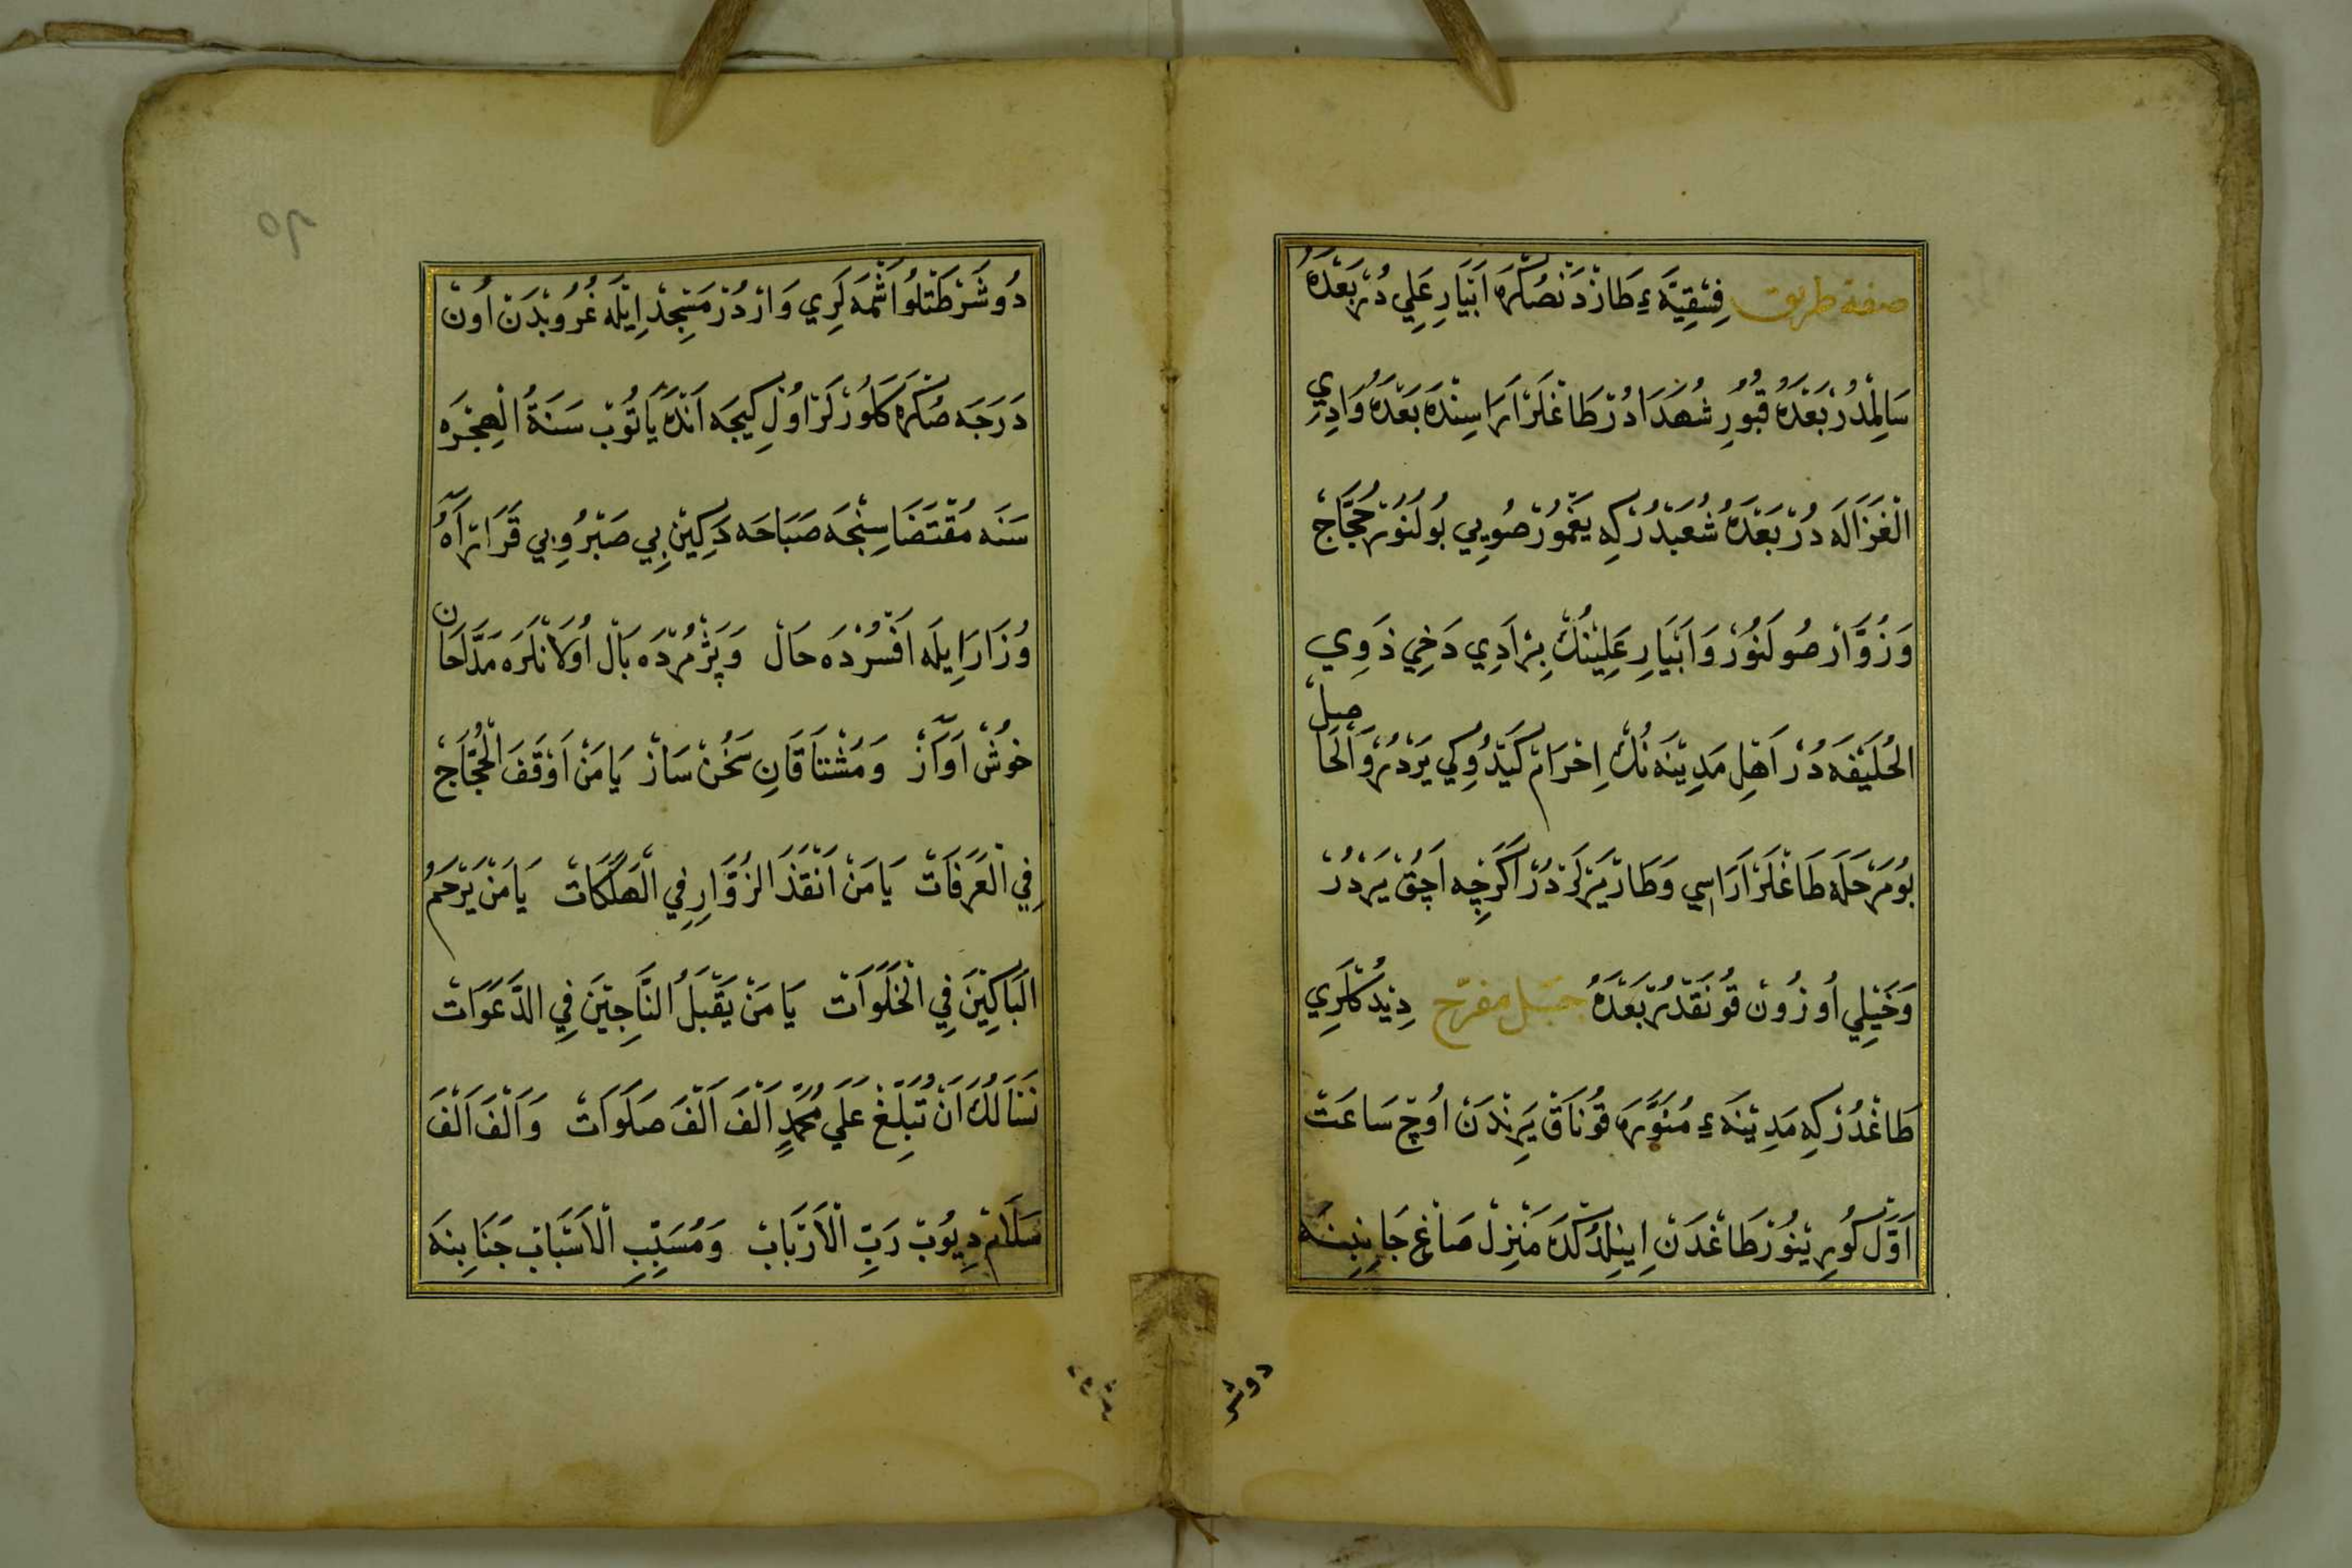 صفة طريق فِسْقِيَّهءِ طَازْدَنْ صُكْرَه اَبْيَارِ عَلِي دُرْ بَعْدَهُ
سَالِمْدُرْ بَعْدَهُ قُبُورِ شُهَدَادُرْ طَاغْلَرْ اَرَاسِنْدَه بَعْدَهُ وَادِيِ
الْغَزَالَه دُرْ بَعْدَهُ شُعَبْدُرْكِه يَغْمُورْ صُويِي بُولُنُورْ حُجَّاجْ
وَزُوَّارْ صُولَنُورْ وَاَبْيَارِ عَلِينُكْ بِرْ اَدِي دَخِي ذَوِي
الْحُلَيْفَه دُرْ اَهْلِ مَدِينَه نُكْ اِحْرَامْ كَيْدُوكِي يَرْدُرْ وَالْحَاصِلْ
بُو مَرْحَلَه طَاغْلَرْ اَرَاسِي وَطَارْ يَرْلَرْدُرْ اَكَرْچِه اَچُقْ يَرْدُرْ
وَخَيْلِي اُوزُونْ قُونَقْدُرْ بَعْدَهُ جَبَل مفرّح دِيدُكْلَرِي
طَاغْدُرْكِه مَدِينَهءِ مُنَوَّرَه قُونَاقْ يَرِنْدَنْ اُوچْ سَاعَتْ
اَوَّلْ كُورِينُورْ طَاغْدَنْ اِينِلْدُكْدَه مَنْزِلْ صَاغْ جَانِبِنَه
دوشر
دُوشَرْ طَتْلُو اَشْمَه لَرِي وَارْدُرْ مَسْجِدْ اِيلَه غُرُوبْدَنْ اُونْ
دَرَجَه صُكْرَه كَلُورْلَرْ اُولْ كِيجَه اَنْدَه يَاتُوبْ سَنَةُ الْهِجْرَه
سَنَه مُقْتَضَاسِنْجَه صَبَاحَه دَكِينْ بِي صَبْرُ وبِي قَرَارْ آهُ
وُزَارَ اِيلَه اَفْسُرْدَه حَالْ وَپَژْمُرْدَه بَالْ اُولَانْلَرَه مَدَّاحَانِ
خُوشْ آوَازْ وَمُشْتَاقَانِ سَخُنْ سَازْ يَا مَنْ اَوْقَفَ الْحُجَّاجَ
فِي الْعَرَفَاتْ يَا مَنْ اَنْقَذَ الزُّوَّارِ فِي الْهَلَكَاتْ يَا مَنْ يَرْحَمُ
الْبَاكِينَ فِي الْخَلَوَاتْ يَا مَنْ يَقْبَلُ النَّاجِينَ فِي الدَّعَوَاتْ
نَسْاَلُكَ اَنْ تُبَلِّغَ عَلَي مُحَمَّدٍ اَلْفَ اَلْفَ صَلَوَاتْ وَاَلْفَ اَلْفَ
سَلَامْ دِيُوبْ رَبِّ الْاَرْبَابْ وَمُسَبِّبِ الْاَسْبَابْ جَنَابِنَه